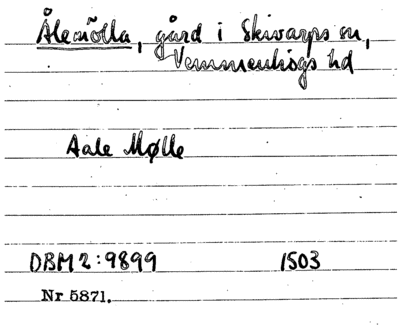 Ålemölla, gård i Skivarps sn,
Vemmenhögs hd
Aale Mølle
DBM 2:9899 1503
Nr 5871.